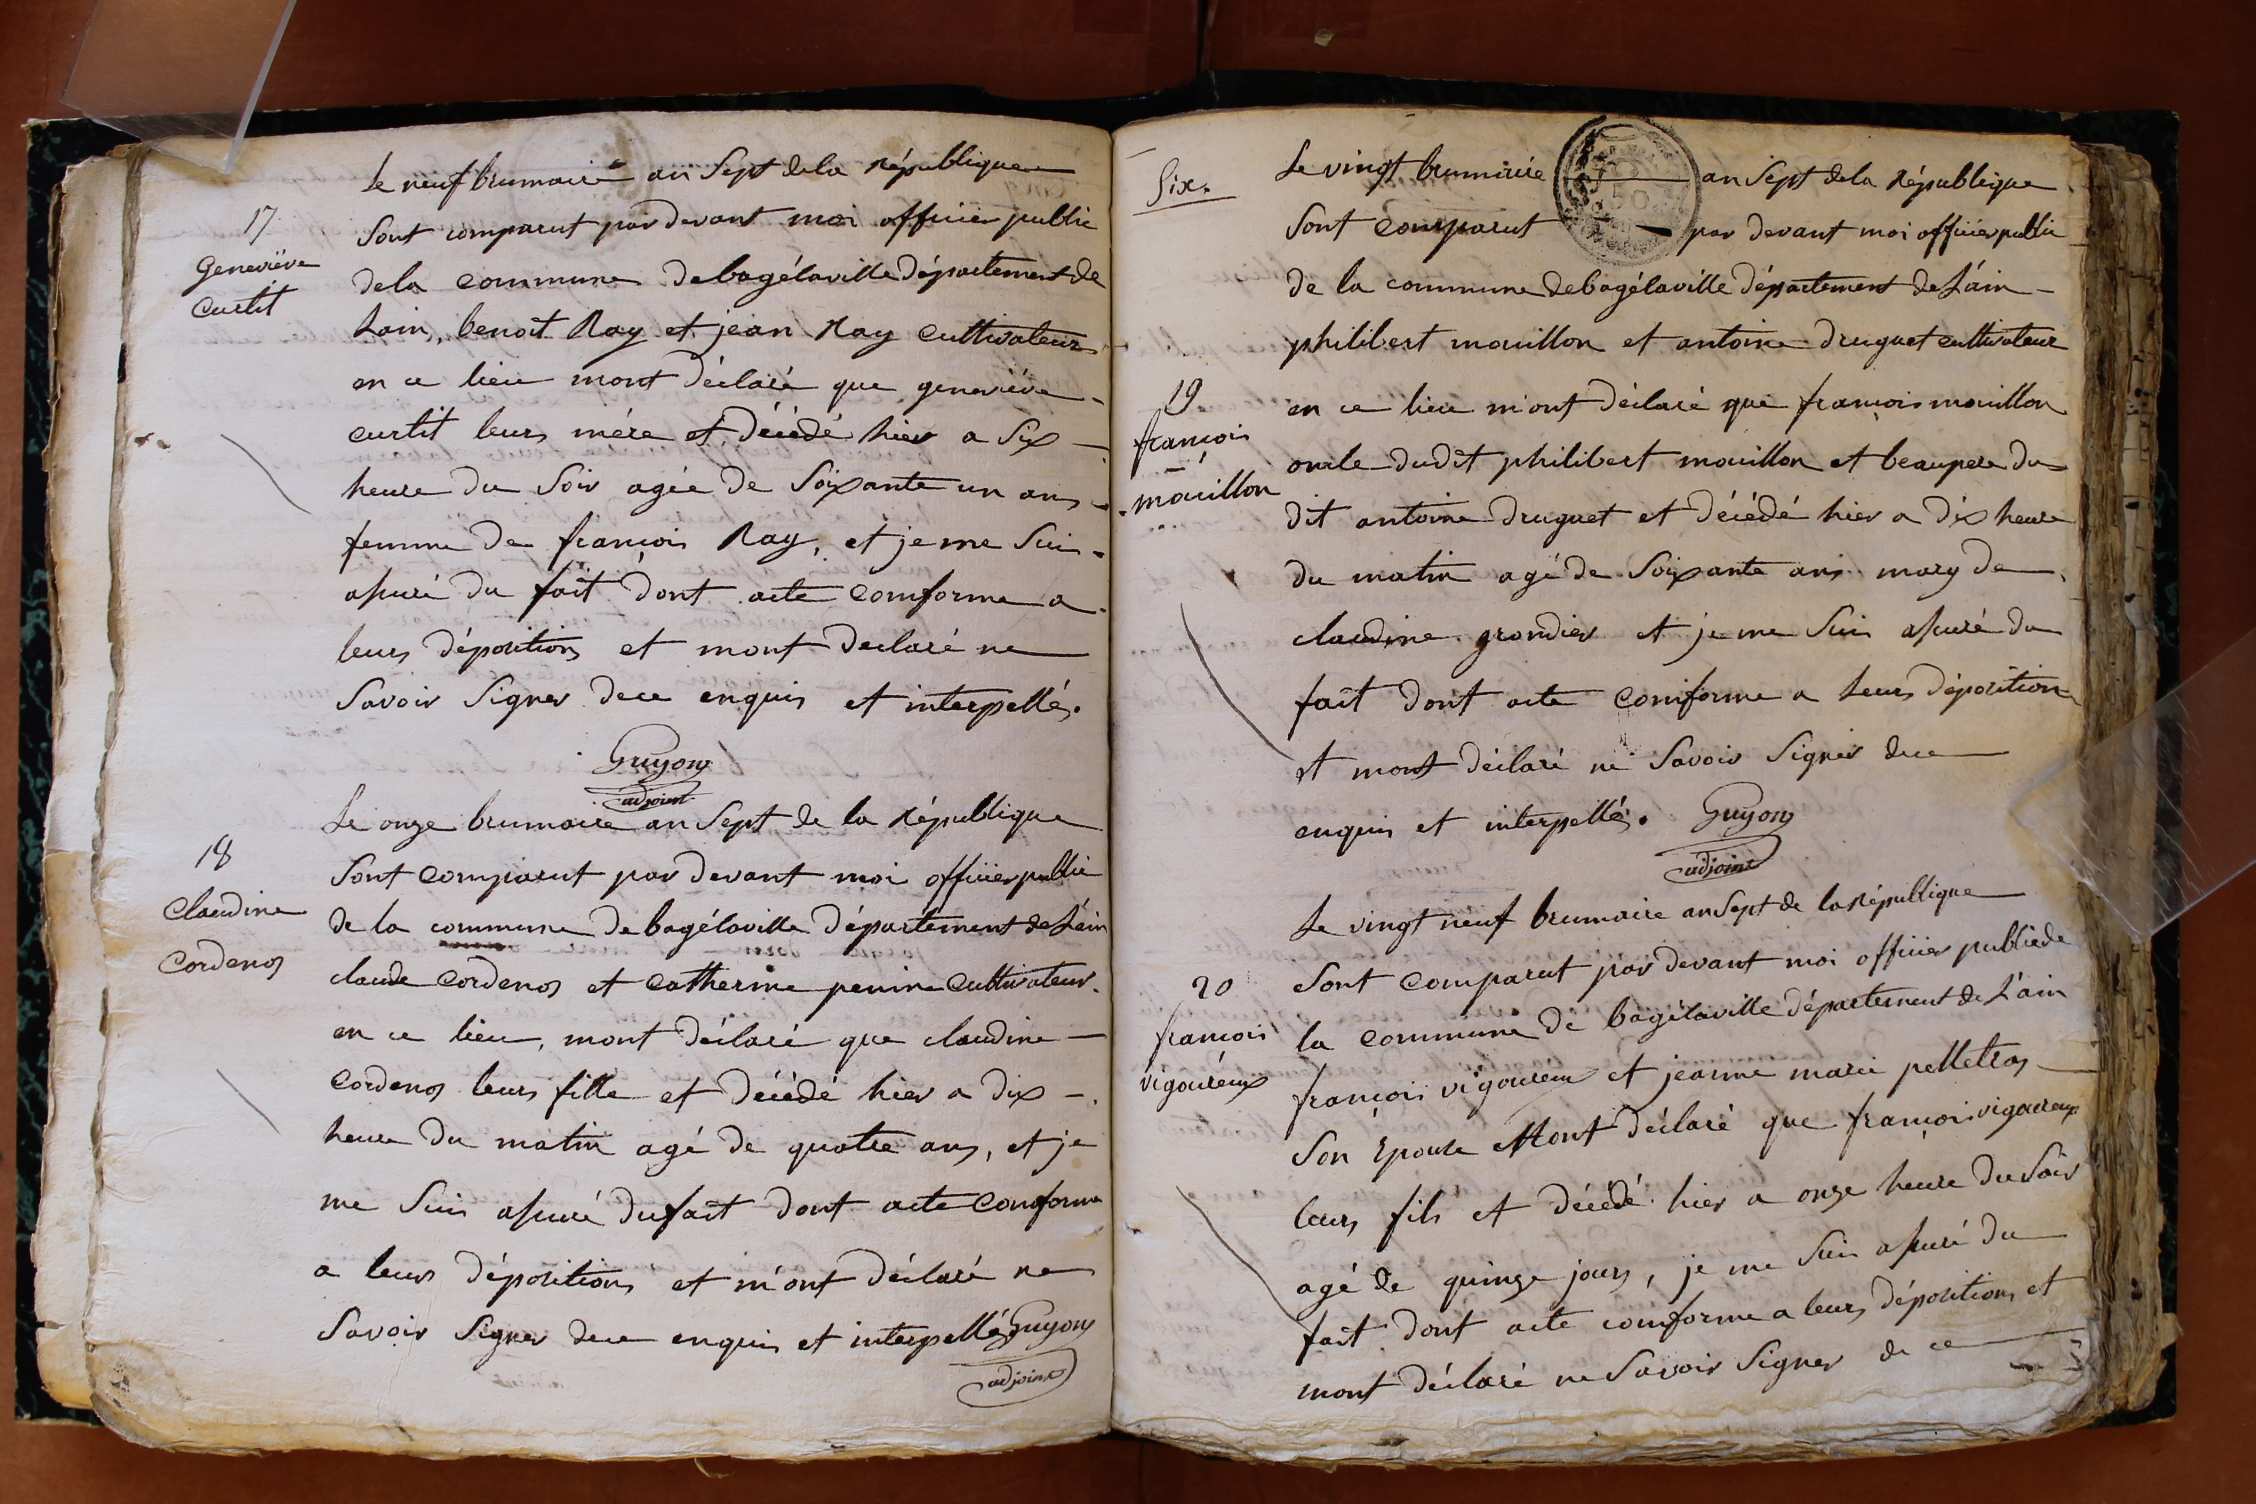 17
Geneviève
Curtit
Le neuf brumaire an Sept dela République
Sont comparut par devant moi officier public
dela commune de bagélaville département de
Lain, benoit Ray et jean Ray cultivateurs
en ce lieu mont déclaré que geneviève
curtit leurs mère et décédé hier a Six
heure du Soir agée de Soixante un ans
femme de françois Ray, et je me Suis
assuré du fait dont acte comforme a
leurs dépositions et mont declaré ne
Savoir Signer dece enquis et interpellés.
Guyon
adjoint
18
Claudine
Cordenos
Le onze brumaire an Sept de la République
Sont comparut par devant moi officier public
de la commune de bagélaville département de Láin
claude Cordenos et Catherine penin Cultivateur
en ce lieu, mont déclaré que claudine
Cordenos leurs fille et décédé hier a dix
heure du matin agé de quatre ans, et je
me Suis assuré du fait dont acte conforme
a leurs dépositions et m'ont déclaré ne
Savoir Signer dece enquis et interpellés Guyon
adjoint
Six.
Le vingt brumaire an Sept dela République
50
Sont Comparut par devant moi officier public
de la commune de bagélaville département de Láin
philibert mouillon et antoine druguet cultivateur
19
françois
mouillon
en ce lieu m'ont déclaré que françois mouillon
oncle dudit philibert mouillon et beaupere du
dit antoine druguet et décédé hier a dix heure
du matin agé de Soixante ans mary de
claudine grandier et je me Suis assuré du
fait dont acte comforme a leurs déposition
et mont déclaré ne Savoir Signer dece
enquis et interpellés. Guyon
adjoint
Le vingt neuf brumaire an Sept de la République
20
françois
vigoureux
Sont Comparut par devant moi officier public de
la commune de bagélaville département de L'ain
françois vigoureux et jeanne marie pelletras
Son Epouse Mont déclaré que françois vigoureux
leurs fils et décédé hier a onze heure du Soir
agé de quinze jours, je me Suis assuré du
fait dont acte comforme a leurs dépositions et
mont déclaré ne Savoir Signer de ce